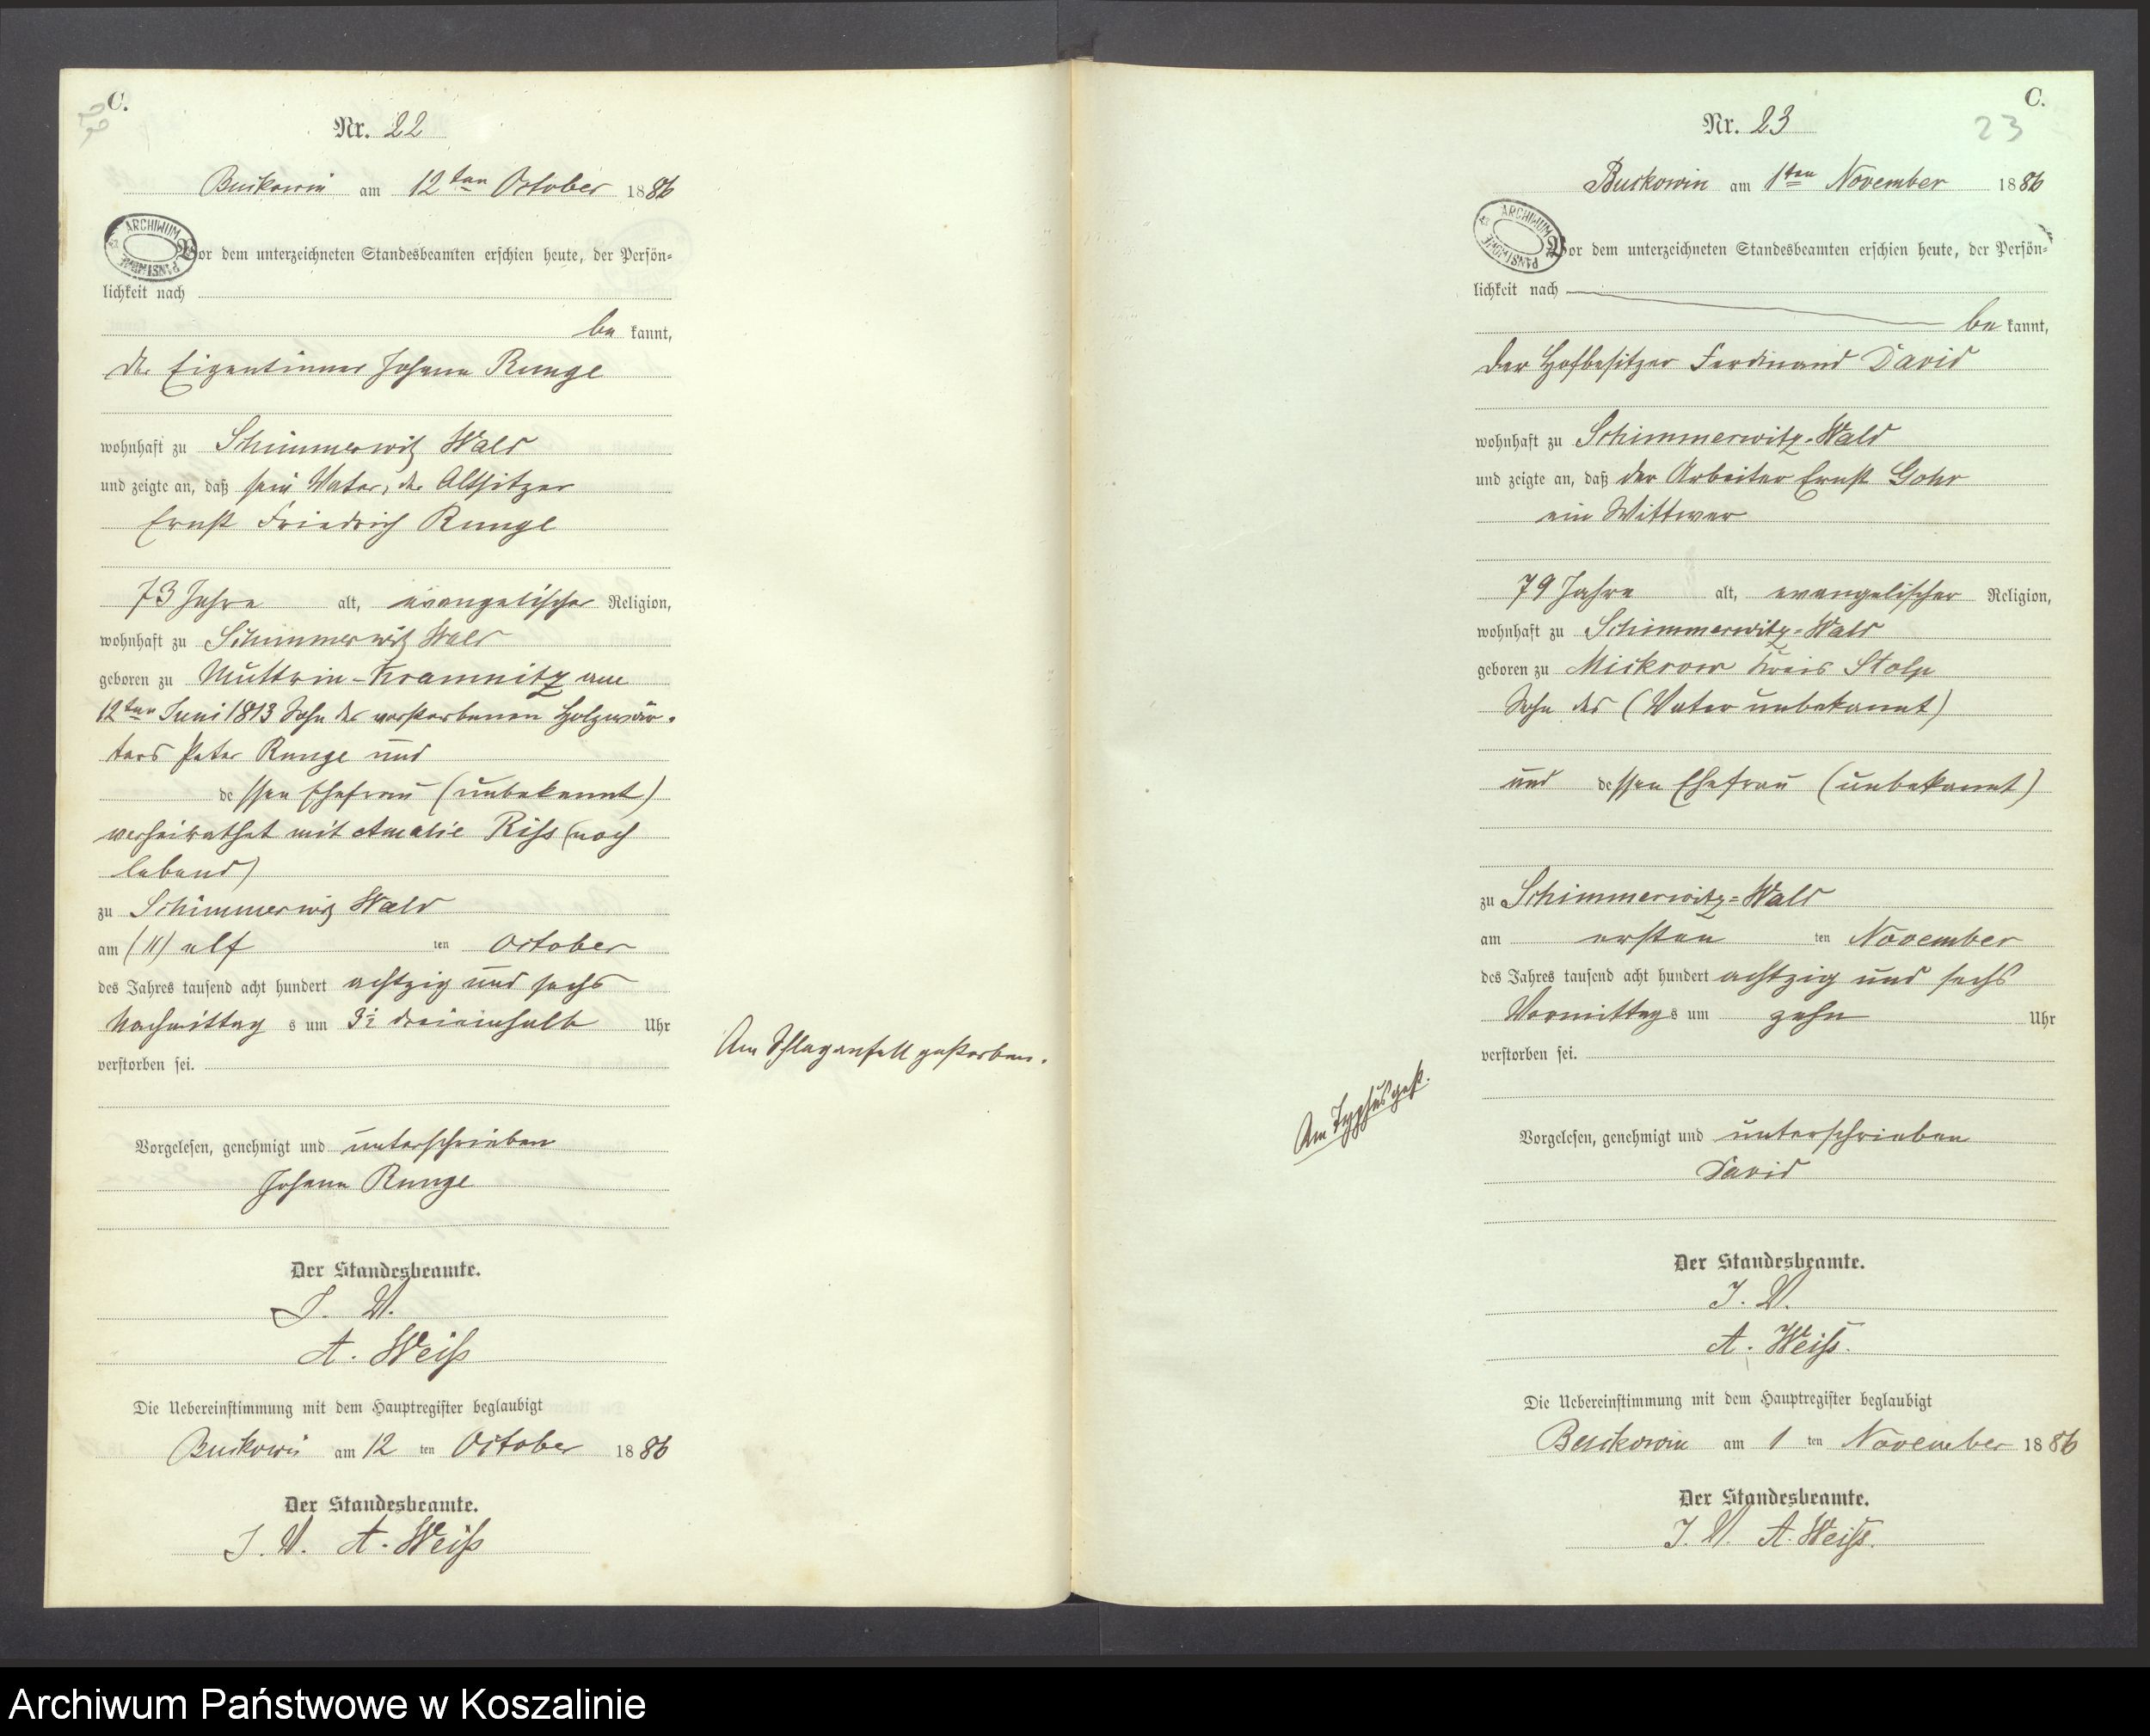 C.
Nr. 22
Buckowin am 12ten October 1886
ARCHIWUM PAŃSTWOWE
Vor dem unterzeichneten Standesbeamten erschien heute, der Persön-
lichkeit nach
be kannt,
der Eigentümer Johann Runge
wohnhaft zu Schimmerwitz Wald
und zeigte an, daß sein Vater, der Altsitzer
Ernst Friedrich Runge
73 Jahre alt, evangelischer Religion,
wohnhaft zu Schimmerwitz Wald
geboren zu Muttrin-Kramnitz am
12ten Juni 1813 Sohn des verstorbenen Holzwär-
ters Peter Runge und
dessen Ehefrau (unbekannt)
verheirathet mit Amalie Riss (noch
lebend)
zu Schimmerwitz Wald
am (11) elf ten October
des Jahres tausend acht hundert achtzig und sechs
Nachmittags um 3½ dreieinhalb Uhr
verstorben sei.
Am Schlaganfall gestorben.
Vorgelesen, genehmigt und unterschrieben
Johann Runge
Der Standesbeamte.
J. V.
A. Weiß
Die Uebereinstimmung mit dem Hauptregister beglaubigt
Buckowin am 12 ten October 1886
Der Standesbeamte.
J. V. A. Weiß
C.
23
Nr. 23
Buckowin am 1ten November 1886
ARCHIWUM PAŃSTWOWE
Vor dem unterzeichneten Standesbeamten erschien heute, der Persön-
lichkeit nach
be kannt,
der Hofbesitzer Ferdinand David
wohnhaft zu Schimmerwitz-Wald
und zeigte an, daß der Arbeiter Ernst Gohr
ein Wittwer
79 Jahre alt, evangelischer Religion,
wohnhaft zu Schimmerwitz-Wald
geboren zu Mickrow Kreis Stolp
Sohn des (Vater unbekannt)
und dessen Ehefrau (unbekannt)
zu Schimmerwitz-Wald
am ersten ten November
des Jahres tausend acht hundert achtzig und sechs
Vormittags um zehn Uhr
verstorben sei.
Am Typhus gest.
Vorgelesen, genehmigt und unterschrieben
David
Der Standesbeamte.
J. V.
A. Weiß.
Die Uebereinstimmung mit dem Hauptregister beglaubigt
Buckowin am 1 ten November 1886
Der Standesbeamte.
J. V. A. Weiß.
Archiwum Państwowe w Koszalinie